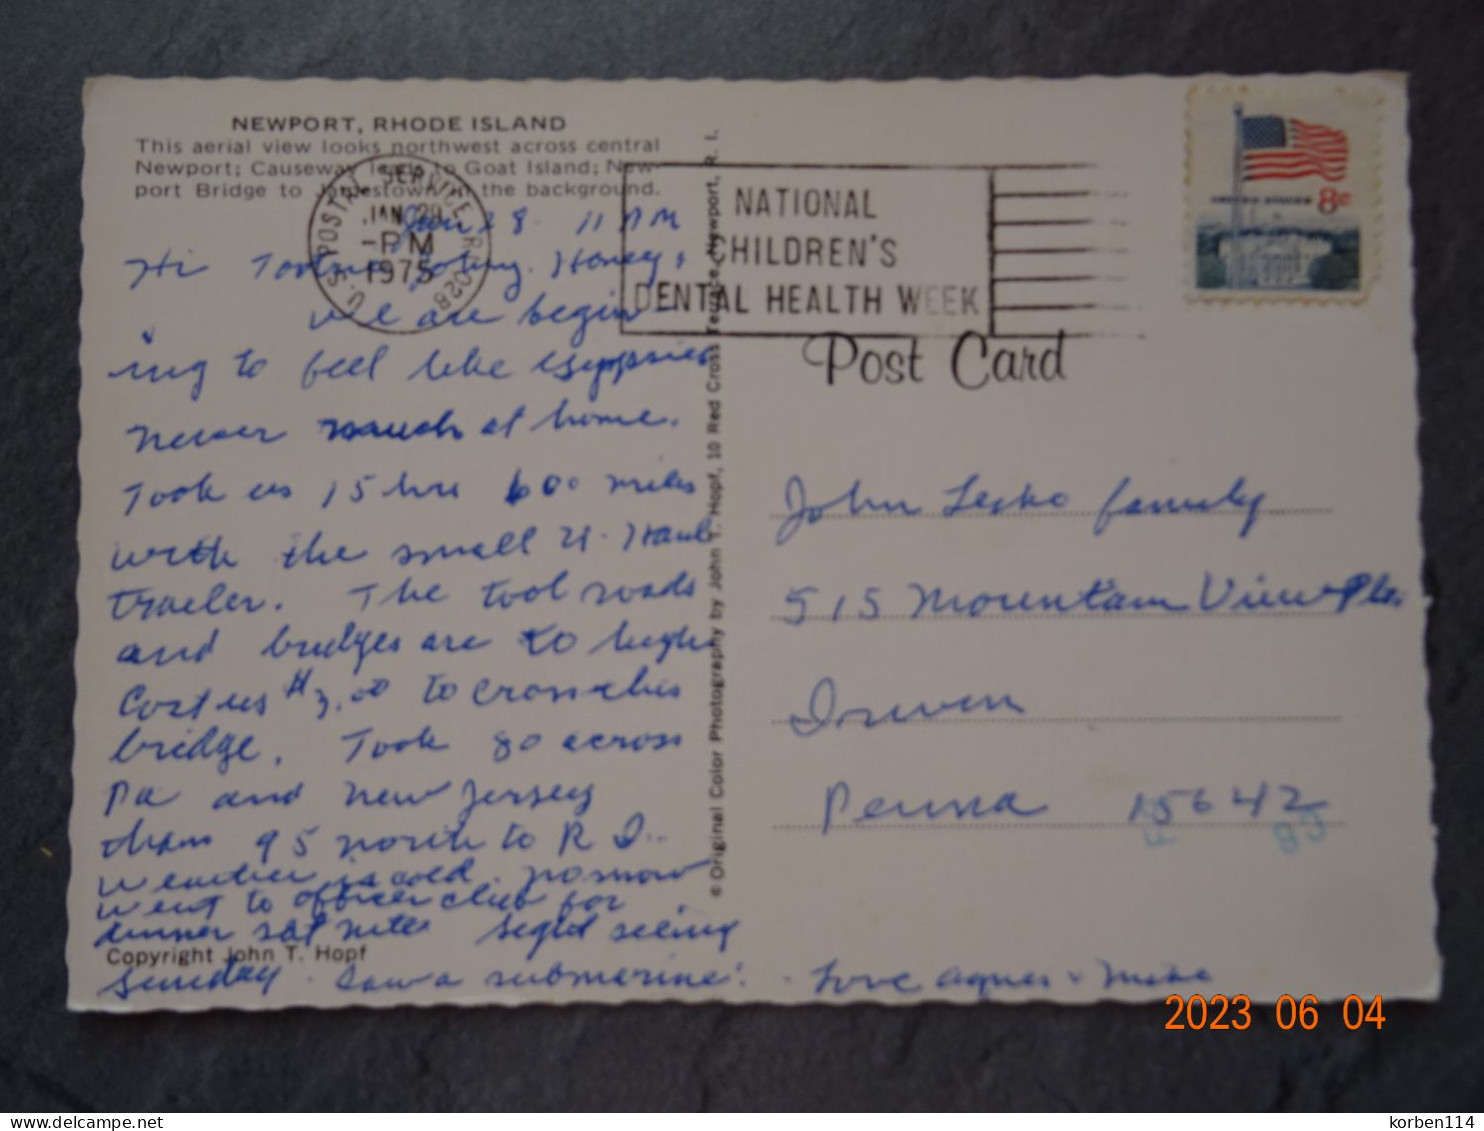 NEWPORT, RHODE ISLAND
This aerial view looks northwest across central
Newport; Causeway leads to Goat Island; New-
port Bridge to Jamestown in the background.
U.S. POSTAL SERVICE, R.I. 028
JAN 28
-PM
1975
NATIONAL
CHILDREN'S
DENTAL HEALTH WEEK
8¢
Post Card
Jan 28 11 AM
Hi Honey,
we are begin-
ing to feel like gyppsies
never much at home.
Took us 15 hrs 600 miles
with the small U-Haul
trailer. The tool roads
and bridges are to high
Cost us $3.00 to cross this
bridge. Took 80 across
Pa and new Jersey
then 95 north to R I.
weather is cold. no snow
went to officer club for
dinner sat nite. Sight seeing
Sunday. Saw a submarine!
. Love Agnes & Mike
Copyright John T. Hopf
© Original Color Photography by John T. Hopf, 10 Red Cross Terrace, Newport, R. I.
John Lesko family
515 Mountain View Ple.
Irwin
Penna 15642
2023 06 04
delcampe.net
korben114